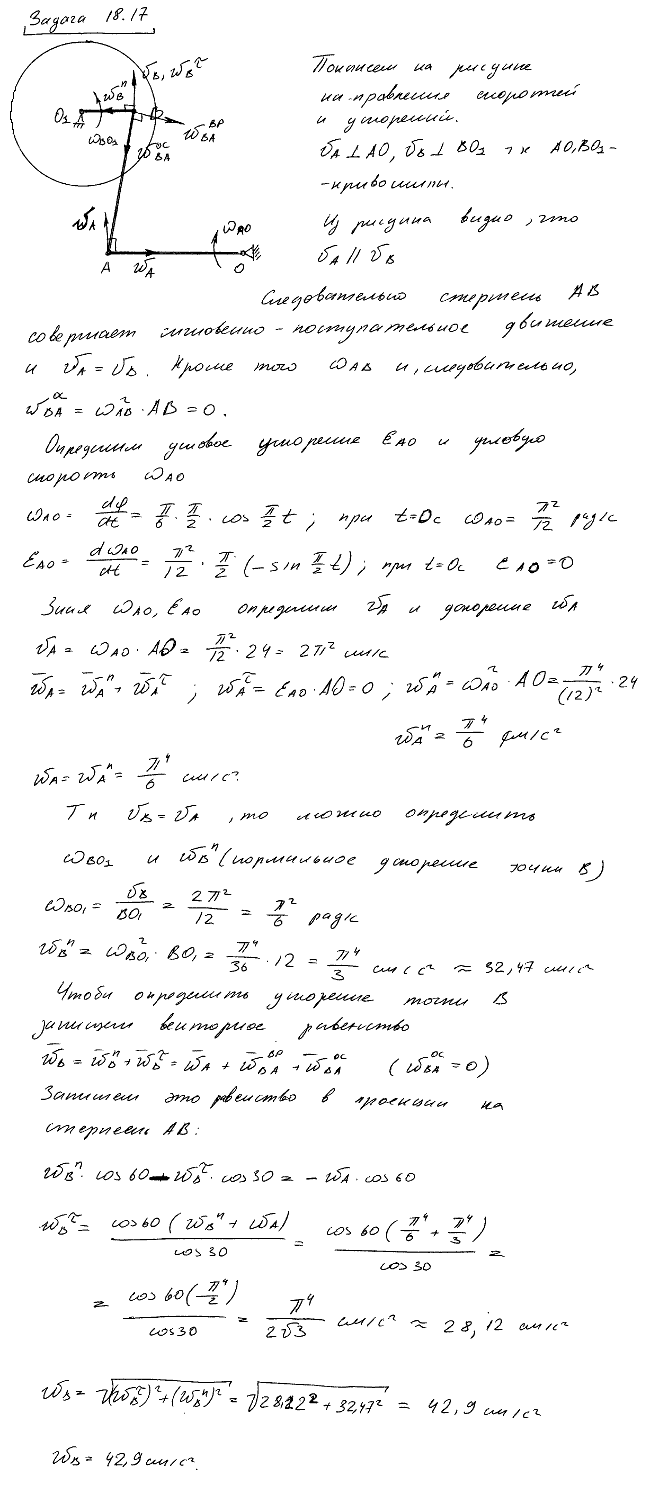 Задача 18.17
Покажем на рисунке
направления скоростей
и ускорений.
v_A ⊥ AO, v_B ⊥ BO₁ т к AO, BO₁ -
- кривошипы.
Из рисунка видно, что
v_A // v_B
O₁ w_B^n v_B, w_B^τ
ω_BO₁ w_BA^ос w_BA^вр
v_A ω_AO
A w_A O
Следовательно стержень AB
совершает мгновенно - поступательное движение
и v_A = v_B. Кроме того ω_AB и, следовательно,
w_BA^ос = ω_AB² · AB = 0.
Определим угловое ускорение ε_AO и угловую
скорость ω_AO
ω_AO = dφ/dt = π/6 · π/2 · cos π/2 t ; при t=0c ω_AO = π²/12 рад/с
ε_AO = dω_AO/dt = π²/12 · π/2 (-sin π/2 t) ; при t=0c ε_AO = 0
Зная ω_AO, ε_AO определим v_A и ускорение w_A
v_A = ω_AO · AO = π²/12 · 24 = 2π² см/с
w̄_A = w̄_A^n + w̄_A^τ ; w_A^τ = ε_AO · AO = 0 ; w_A^n = ω_AO² · AO = π⁴/(12)² · 24
w_A^n = π⁴/6 см/с²
w_A = w_A^n = π⁴/6 см/с²
Т к v_B = v_A, то можно определить
ω_BO₁ и w_B^n (нормальное ускорение точки B)
ω_BO₁ = v_B/BO₁ = 2π²/12 = π²/6 рад/с
w_B^n = ω_BO₁² · BO₁ = π⁴/36 · 12 = π⁴/3 см/с² ≈ 32,47 см/с²
Чтобы определить ускорение точки B
запишем векторное равенство
w̄_B = w̄_B^n + w̄_B^τ = w̄_A + w̄_BA^вр + w̄_BA^ос (w_BA^ос = 0)
Запишем это рвенство в проекции на
стержень AB:
w_B^n · cos 60 - w_B^τ · cos 30 = - w_A · cos 60
w_B^τ = cos 60 (w_B^n + w_A)/cos 30 = cos 60 (π⁴/6 + π⁴/3)/cos 30 =
= cos 60 (π⁴/2)/cos 30 = π⁴/2√3 см/с² ≈ 28,12 см/с²
w_B = √((w_B^τ)² + (w_B^n)²) = √(28,12² + 32,47²) = 42,9 см/с²
w_B = 42,9 см/с².